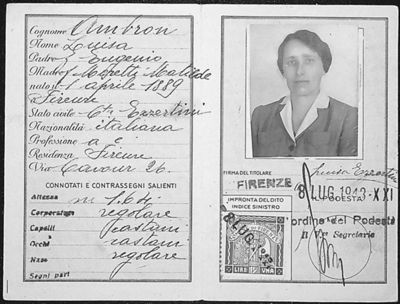 Cognome Ambron
Nome Luisa
Padre fu Eugenio
Madre fu Moretti Matilde
nato il 1 aprile 1889
a Firenze
Stato civile Ezzertini
Nazionalità italiana
Professione
Residenza Firenze
Via Cavour 26.
CONNOTATI E CONTRASSEGNI SALIENTI
Altezza m 1.64
Corporatura regolare
Capelli castani
Occhi castani
Naso regolare
Segni part
FIRMA DEL TITOLARE Luisa Ezzertini
FIRENZE 8 LUG 1943-XXI
IMPRONTA DEL DITO
INDICE SINISTRO
IL PODESTÀ
l'ordine del Podestà
Il Vo Segretario
8 LUG. 1943
LIRE UNA